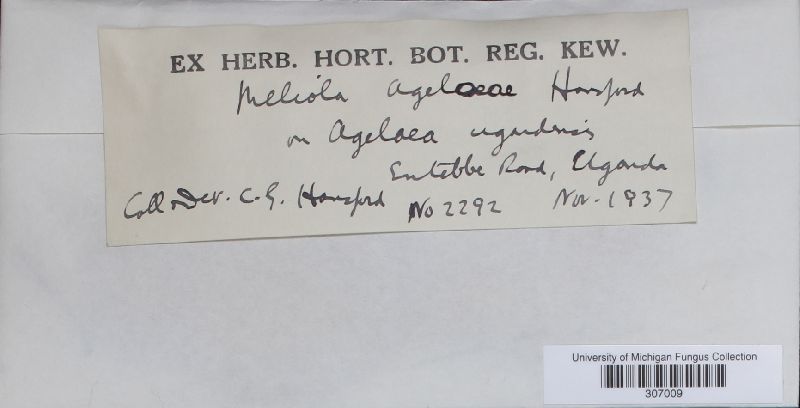 EX HERB. HORT. BOT. REG. KEW.
Meliola Agelaeae Hansford
on Agelaea ugandensis
Entebbe Road, Uganda
Coll & Det. C.G. Hansford No 2292 Nov. 1937
University of Michigan Fungus Collection
307009